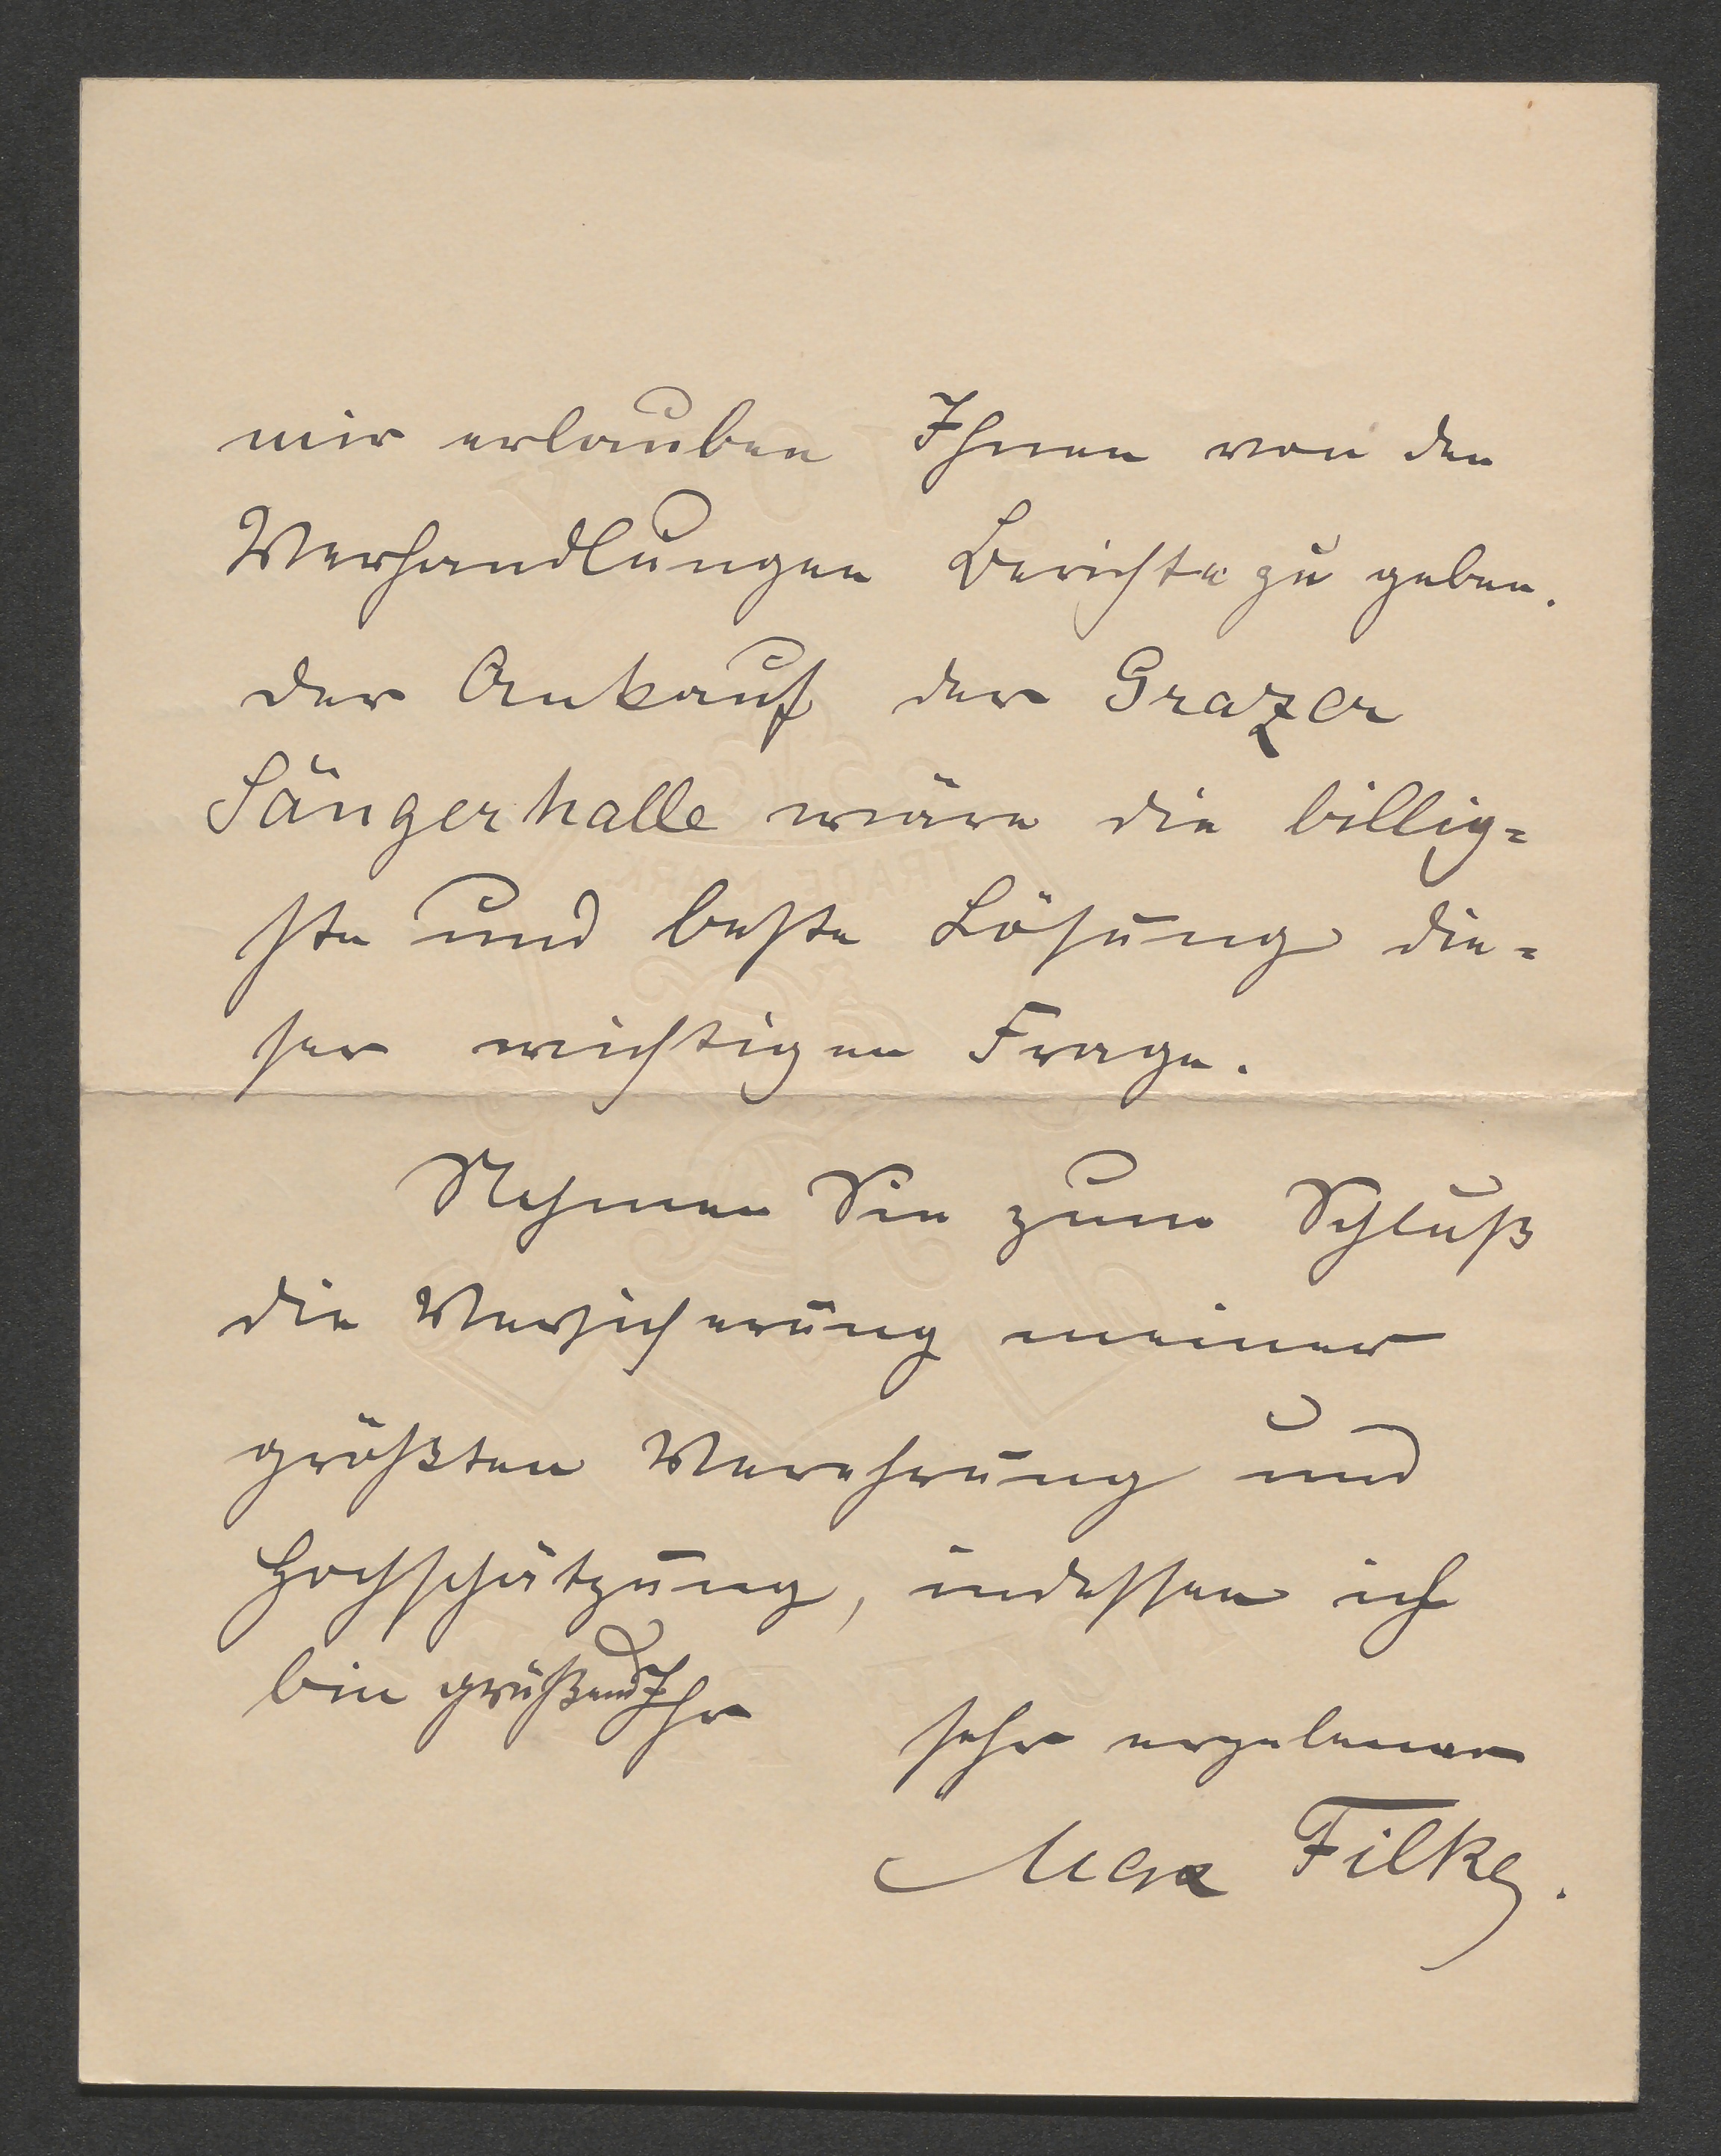 mir erlauben Ihnen von den
Verhandlungen Berichte zu geben.
der Ankauf der Grazer
Sängerhalle wäre die billig=
ste und beste Lösung die=
ser wichtigen Frage.
Nehmen Sie zum Schluß
die Versicherung meiner
größten Verehrung und
Hochschätzung, indessen ich
bin grüßend Ihr
sehr ergebener
Max Filke.
TRADE MARK